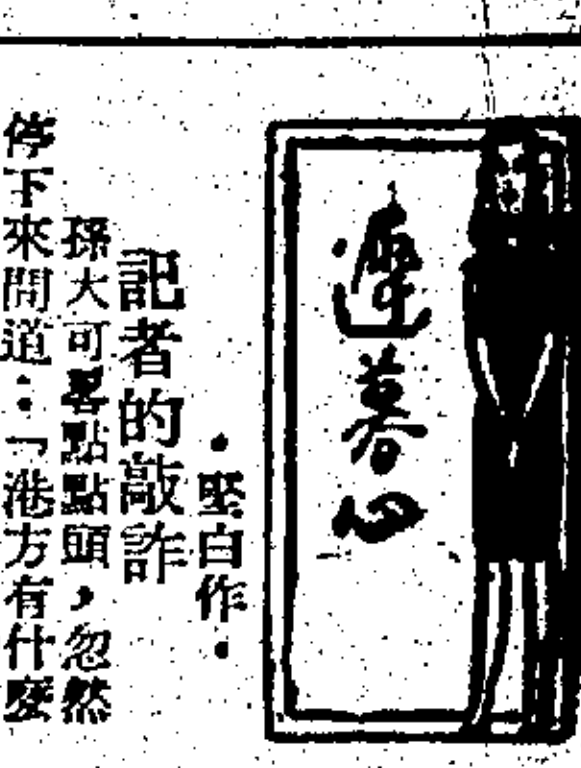 遲暮心
·堅白作·
記者的敲詐
孫大可畧點點頭，忽然
停下來問道：「港方有什麼